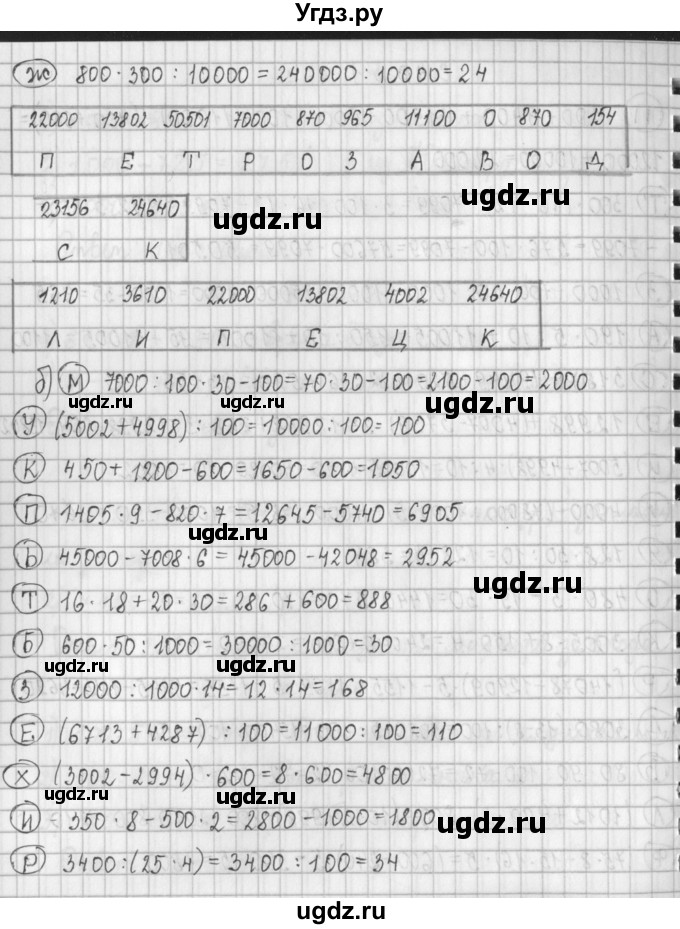 Угдз.ру
Ж 800 · 300 : 10000 = 240000 : 10000 = 24
22000 13802 50501 7000 870 965 11100 0 870 154
П Е Т Р О З А В О Д
23156 24640
ugdz.ru ugdz.ru
С К
1210 3610 22000 13802 4002 24640
Л И П Е Ц К
б) М 7000 : 100 · 30 - 100 = 70 · 30 - 100 = 2100 - 100 = 2000
ugdz.ru ugdz.ru ugdz.ru
У (5002 + 4998) : 100 = 10000 : 100 = 100
К 450 + 1200 - 600 = 1650 - 600 = 1050
П 1405 · 9 - 820 · 7 = 12645 - 5740 = 6905
ugdz.ru
Ь 45000 - 7008 · 6 = 45000 - 42048 = 2952
ugdz.ru
Т 16 · 18 + 20 · 30 = 286 + 600 = 888
Б 600 · 50 : 1000 = 30000 : 1000 = 30
ugdz.ru ugdz.ru
З 12000 : 1000 · 14 = 12 · 14 = 168
Е (6713 + 4287) : 100 = 11000 : 100 = 110
Х (3002 - 2994) · 600 = 8 · 600 = 4800
ugdz.ru ugdz.ru
И 350 · 8 - 500 · 2 = 2800 - 1000 = 1800
ugdz.ru
Р 3400 : (25 · 4) = 3400 : 100 = 34
ugdz.ru